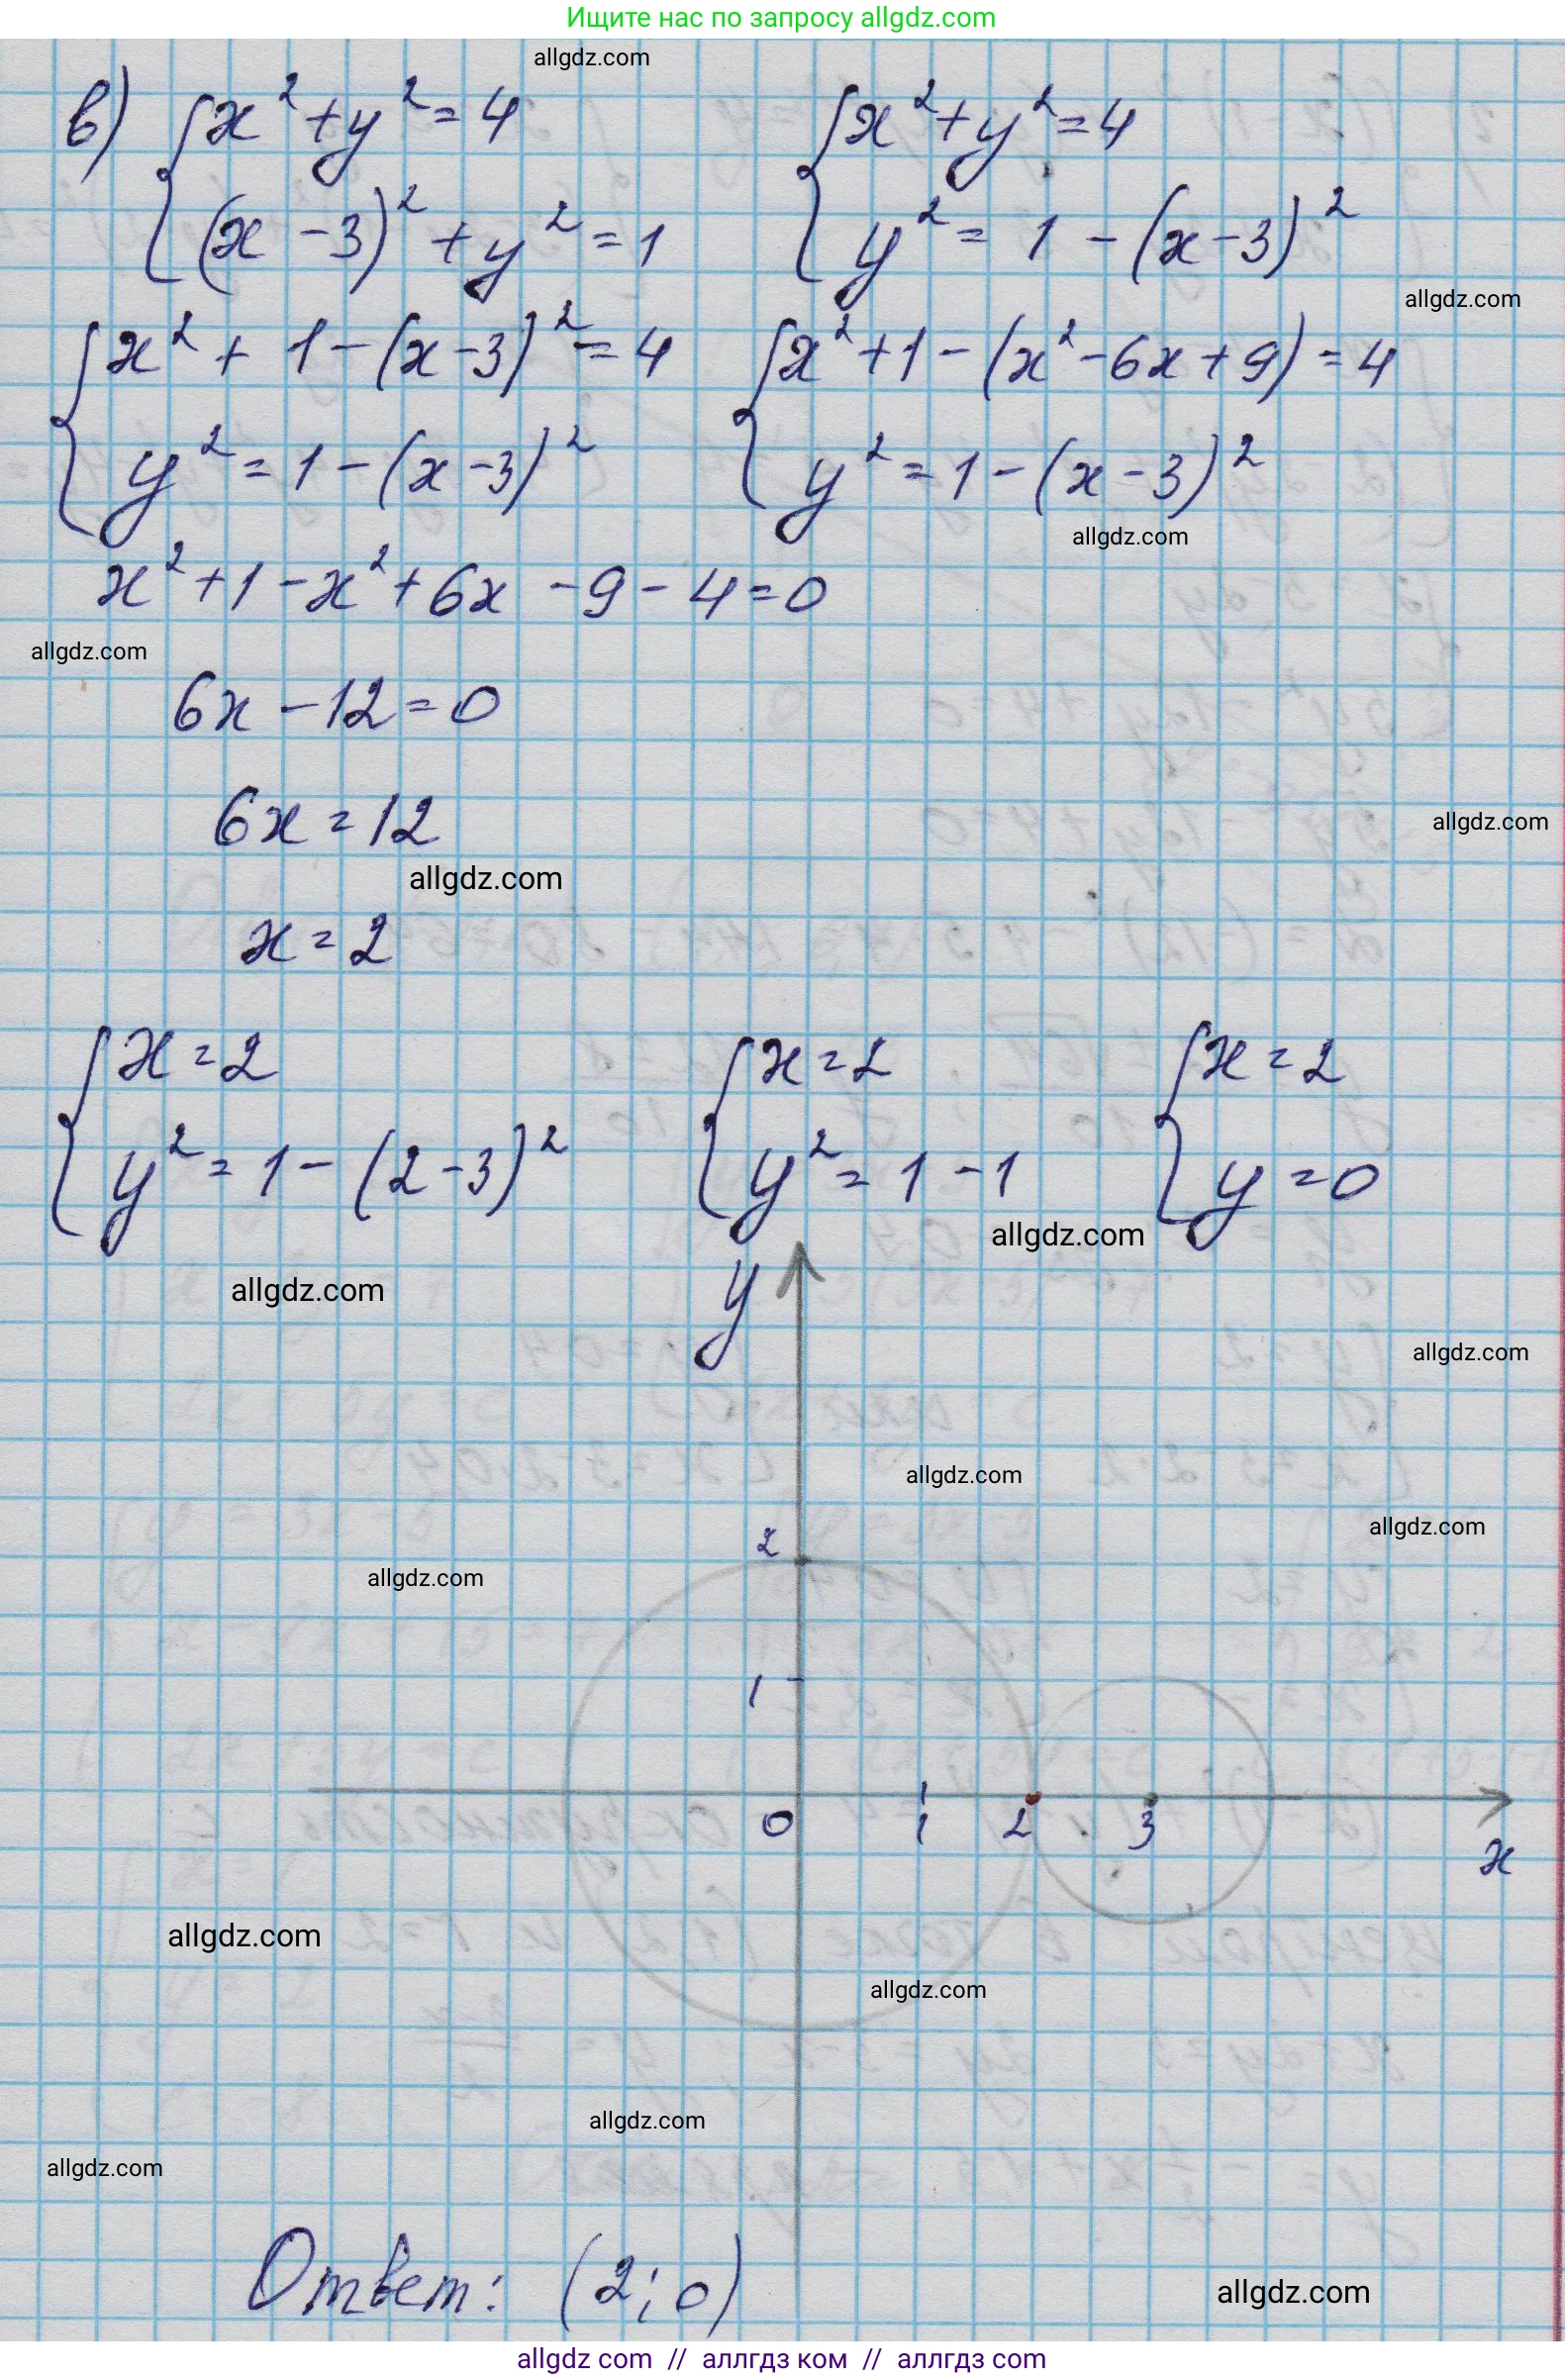 Ищите нас по запросу allgdz.com
allgdz.com
в) { x² + y² = 4 { x² + y² = 4
(x - 3)² + y² = 1 y² = 1 - (x - 3)²
allgdz.com
{ x² + 1 - (x - 3)² = 4 { x² + 1 - (x² - 6x + 9) = 4
y² = 1 - (x - 3)² y² = 1 - (x - 3)²
allgdz.com
x² + 1 - x² + 6x - 9 - 4 = 0
allgdz.com
6x - 12 = 0
6x = 12
allgdz.com
allgdz.com
x = 2
{ x = 2 { x = 2 { x = 2
y² = 1 - (2 - 3)² y² = 1 - 1 y = 0
allgdz.com
allgdz.com
y
allgdz.com
allgdz.com
allgdz.com
2
allgdz.com
1
0 1 2 3
x
allgdz.com
allgdz.com
allgdz.com
allgdz.com
Ответ: (2; 0)
allgdz.com
allgdz com // аллгдз ком // аллгдз com